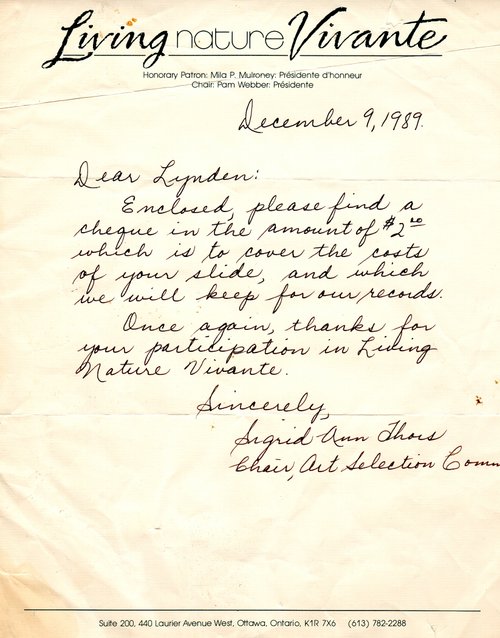 Living nature Vivante
Honorary Patron: Mila P. Mulroney: Présidente d'honneur
Chair: Pam Webber: Présidente
December 9, 1989.
Dear Lynden:
Enclosed, please find a
cheque in the amount of $2.00
which is to cover the costs
of your slide, and which
we will keep for our records.
Once again, thanks for
your participation in Living
Nature Vivante.
Sincerely,
Sigrid Ann Thors
Chair, Art Selection Comm
Suite 200, 440 Laurier Avenue West, Ottawa, Ontario, K1R 7X6 (613) 782-2288